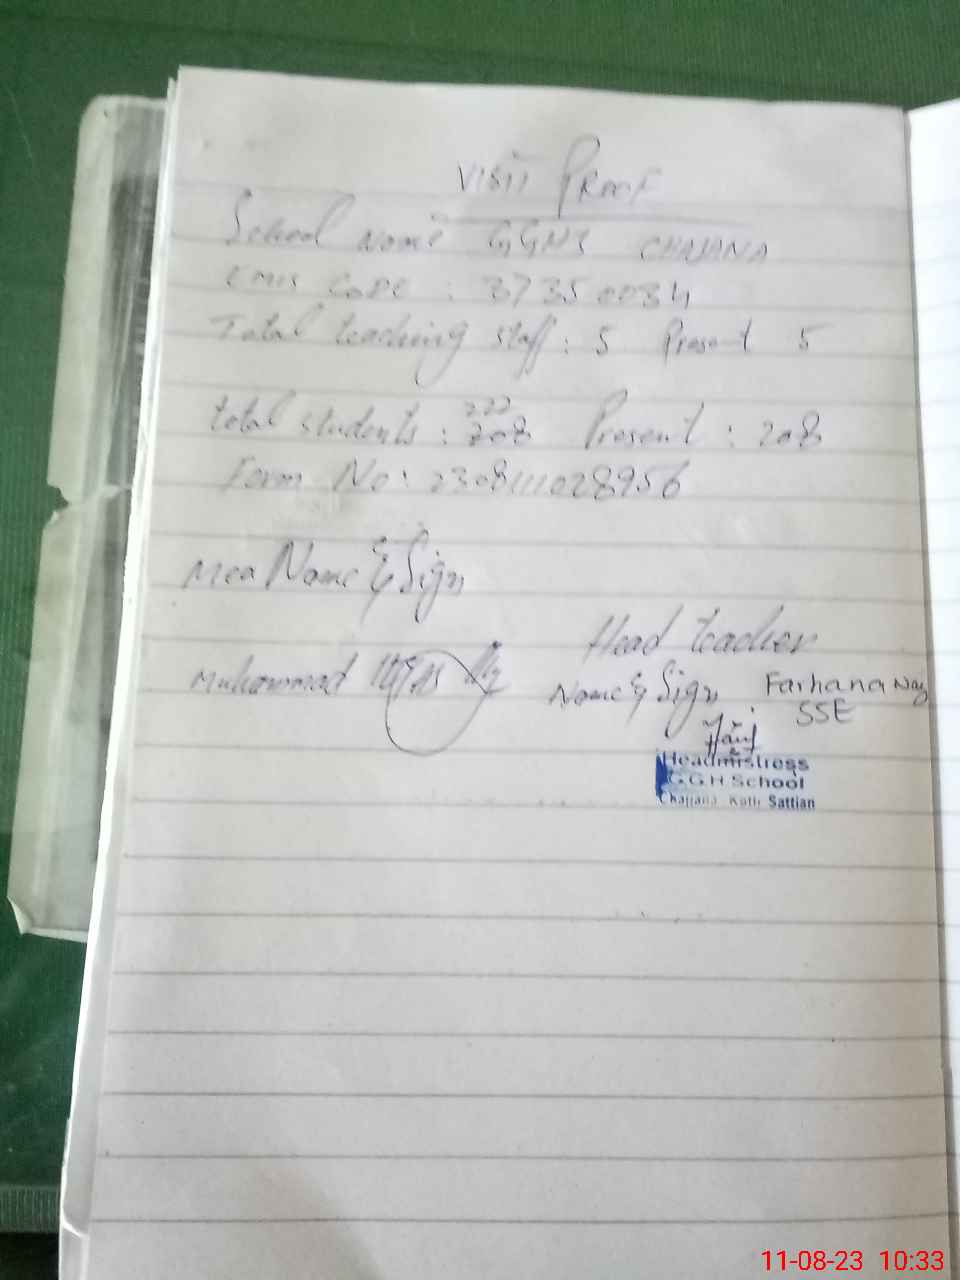 VISIT PROOF
School Name GGHS CHAJANA
EMIS CODE : 37350034
Total teaching staff : 5 Present 5
222
total students : 208 Present : 208
Form No : 230811028956
Mea Name & Sign
Head teacher
Muhammad
Name & Sign Farhana Naz
SSE
Headmistress
G.G.H School
Chajjana Kotli Sattian
11-08-23 10:33